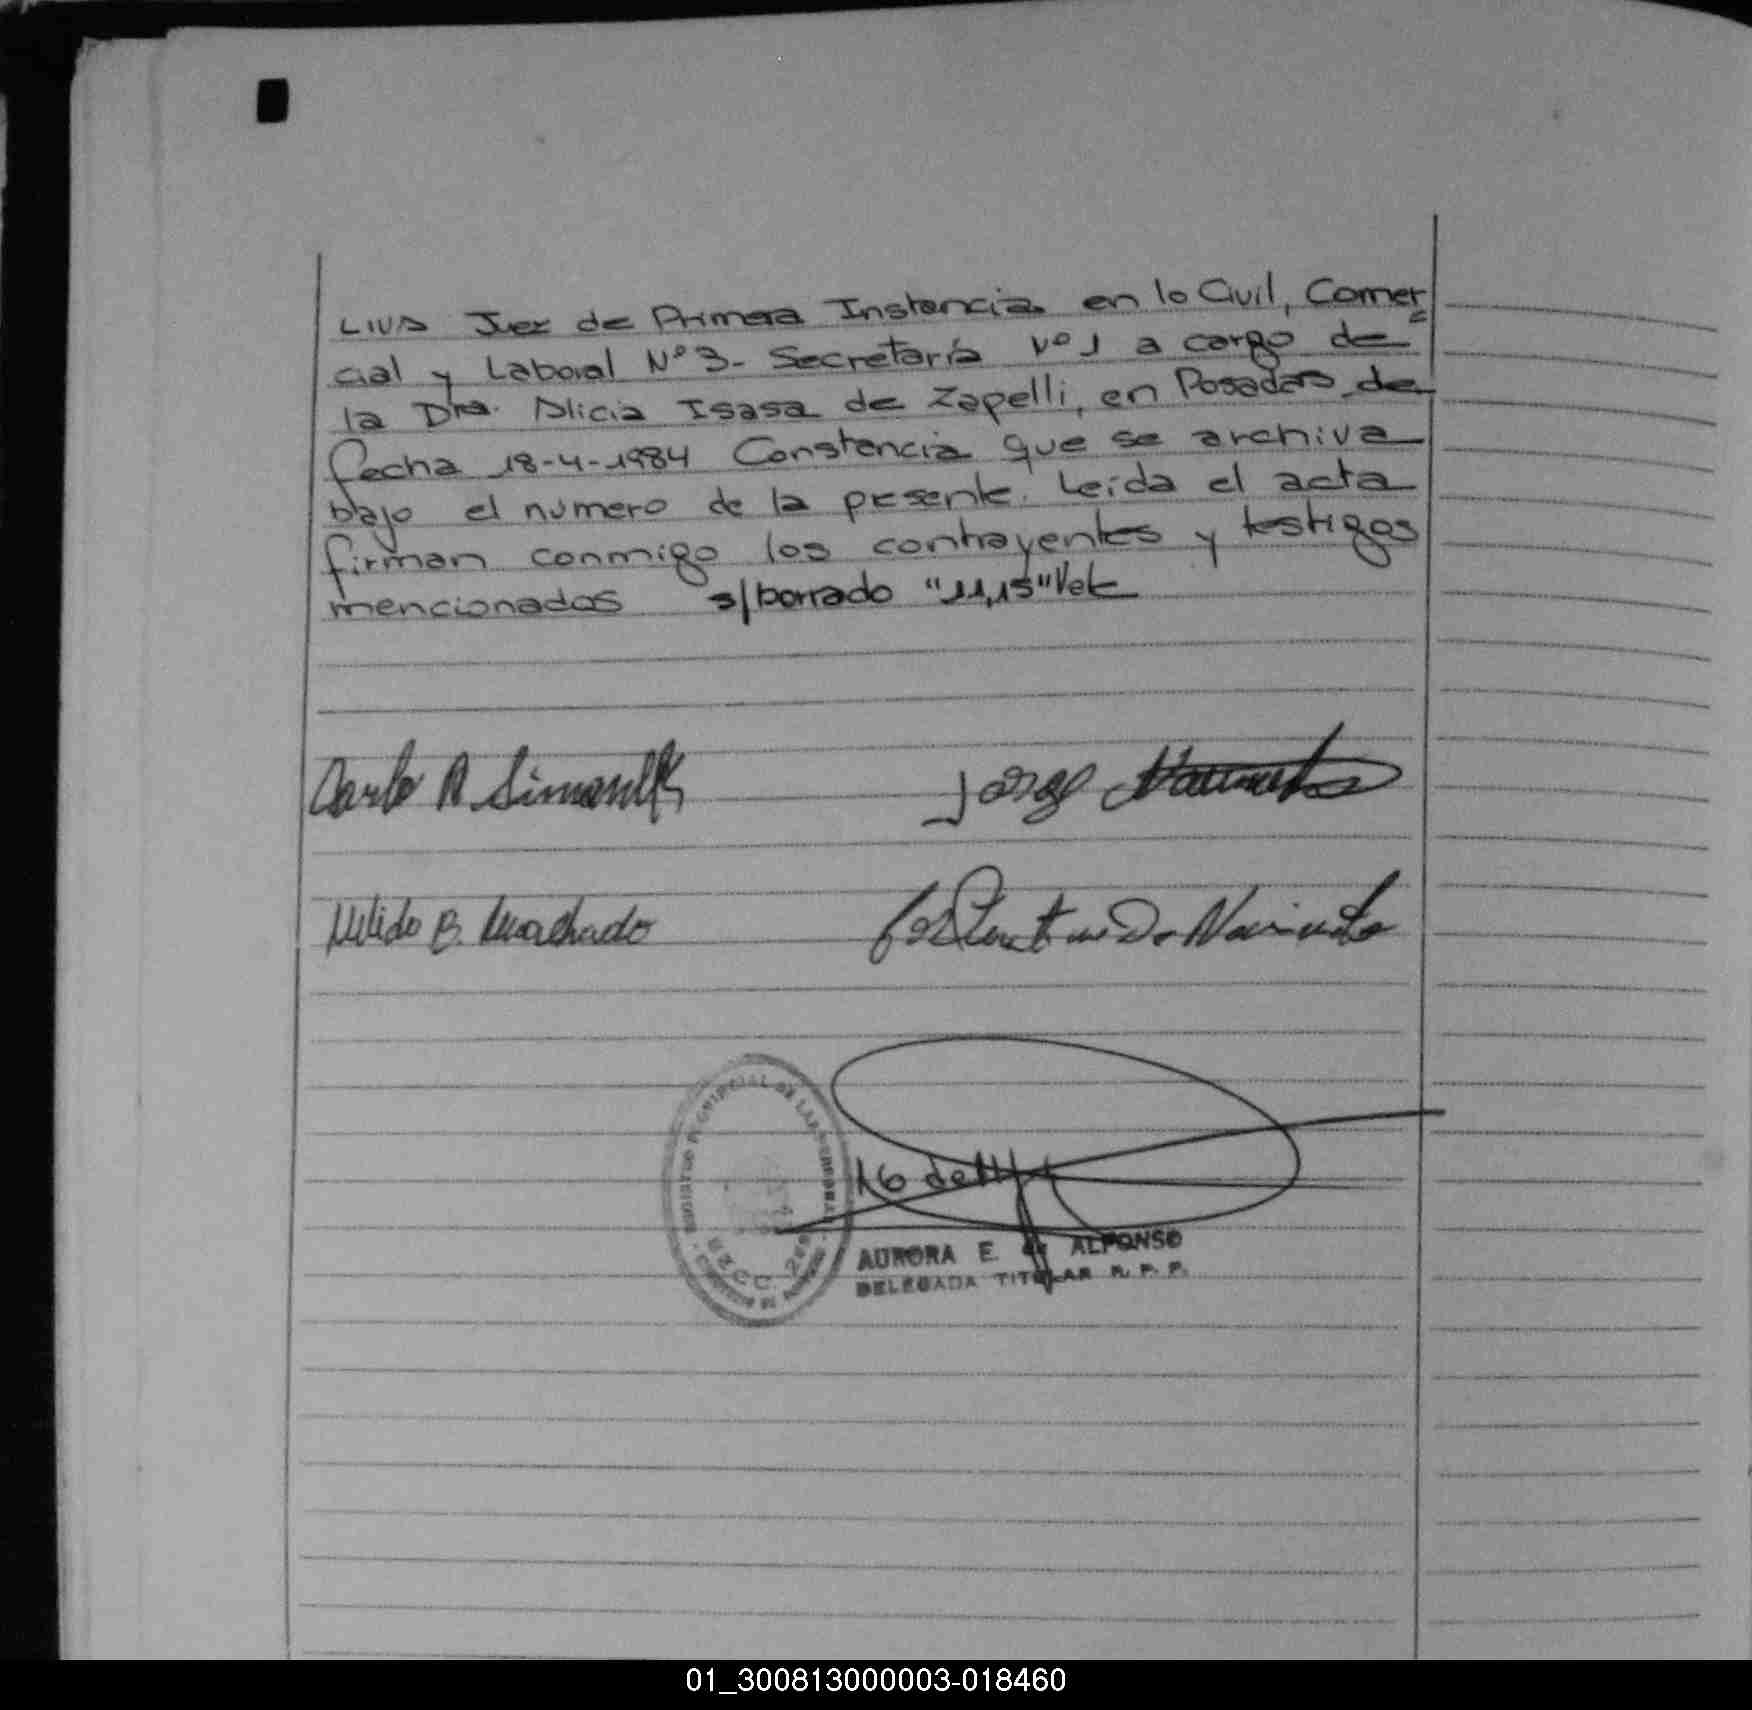 LIVA Juez de Primera Instancia en lo Civil, Comer=
cial y Laboral Nº 3- Secretaría Nº 1 a cargo de
la Dra. Alicia Isasa de Zapelli, en Posadas de
fecha 18-4-1984 Constancia que se archiva
bajo el número de la presente. Leída el acta
firman conmigo los contrayentes y testigos
mencionados s/borrado "11,15" Vale
Carlo A.
Jorge
B. Machado
REGISTRO PROVINCIAL DE LAS PERSONAS
16 de
AURORA E. de ALFONSO
DELEGADA TITULAR R. P. P.
01_300813000003-018460